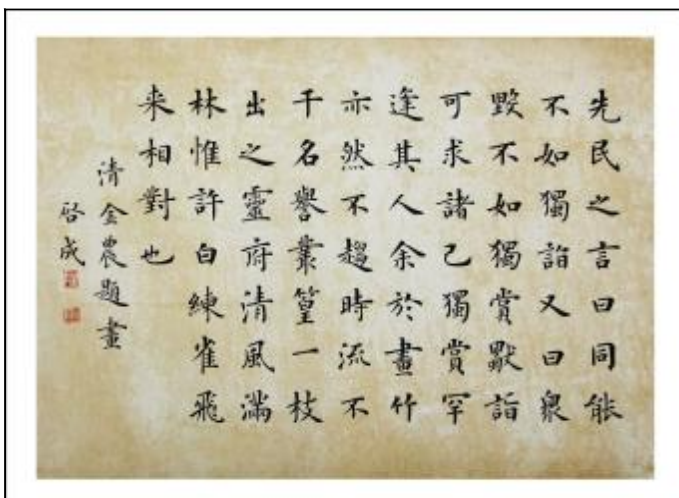 先民之言曰同能
不如獨詣又曰衆
毀不如獨賞獸詣
可求諸己獨賞罕
逢其人余於畫竹
亦然不趨時流不
千名譽叢篁一枝
出之靈府清風滿
林惟許白練雀飛
来相對也
清金農題畫
啓成